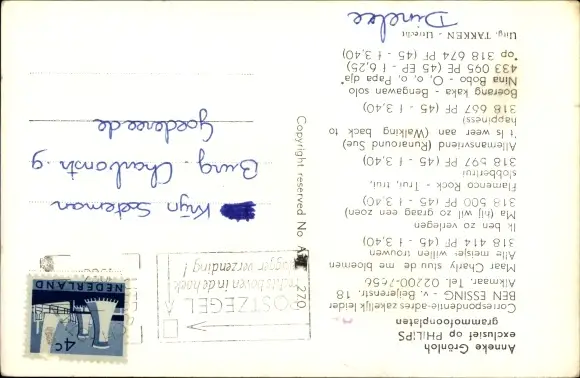 Anneke Grönloh
exclusief op PHILIPS
grammofoonplaten
Correspondentie-adres zakelijk leider
BEN ESSING - v. Beijerenstr. 18
Alkmaar, Tel. 02200-7656
Maar Charly stuurde me bloemen
Alle meisjes willen trouwen
318 414 PF (45 - f 3,40)
Ik ben zo verlegen
Ma (hij wil zo graag een zoen)
318 500 PF (45 - f 3,40)
Flamenco Rock - Trui, trui,
slobbertrui
318 597 PF (45 - f 3,40)
Allemansvriend (Runaround Sue)
't Is weer aan (Walking back to
happiness)
318 657 PF (45 - f 3,40)
Boerang kaka - Bengawan solo
Nina Bobo - O, o, o,
433 095 PE (45 EP - f 6,25)
Papa dja
op
318 674 PF (45 - f 3,40)
Uitg. TAKKEN - Utrecht
Dinelee
Copyright reserved No. AX 270
POSTZEGEL
rechts boven in de hoek
vlugger verzending!
NEDERLAND
4c
Krijn Soeteman
Burg. Charbonstr. 9
Goedereede